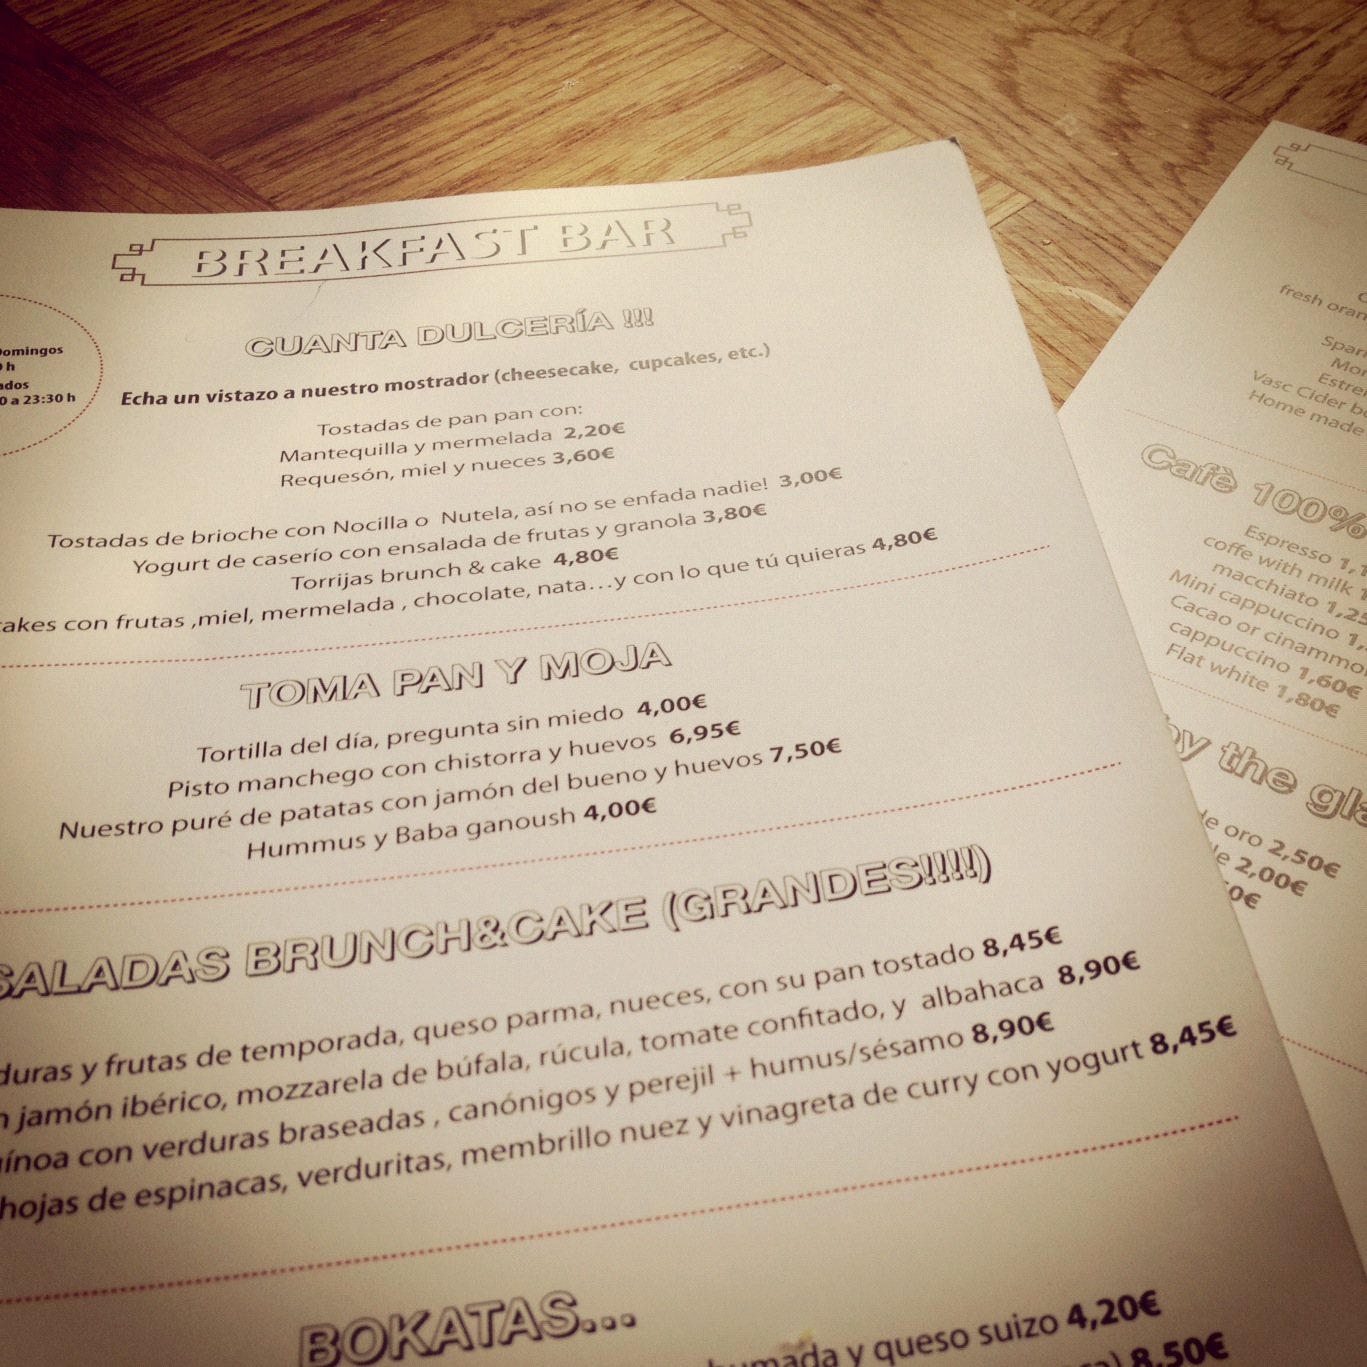 BREAKFAST BAR
Domingos
h
0 a 23:30 h
CUANTA DULCERÍA !!!
Echa un vistazo a nuestro mostrador (cheesecake, cupcakes, etc.)
Tostadas de pan pan con:
Mantequilla y mermelada 2,20€
Requesón, miel y nueces 3,60€
Tostadas de brioche con Nocilla o Nutela, así no se enfada nadie! 3,00€
Yogurt de caserío con ensalada de frutas y granola 3,80€
Torrijas brunch & cake 4,80€
con frutas ,miel, mermelada , chocolate, nata...y con lo que tú quieras 4,80€
TOMA PAN Y MOJA
Tortilla del día, pregunta sin miedo 4,00€
Pisto manchego con chistorra y huevos 6,95€
Nuestro puré de patatas con jamón del bueno y huevos 7,50€
Hummus y Baba ganoush 4,00€
SALADAS BRUNCH&CAKE (GRANDES!!!!)
duras y frutas de temporada, queso parma, nueces, con su pan tostado 8,45€
n jamón ibérico, mozzarela de búfala, rúcula, tomate confitado, y albahaca 8,90€
uínoa con verduras braseadas , canónigos y perejil + humus/sésamo 8,90€
hojas de espinacas, verduritas, membrillo nuez y vinagreta de curry con yogurt 8,45€
BOKATAS...
y queso suizo 4,20€
8,50€
fresh oran
Spar
Mor
Estre
Vasc Cider b
Home made
Cafè 100%
Espresso 1,1
coffe with milk 1
macchiato 1,25
Mini cappuccino 1,
Cacao or cinammo
cappuccino 1,60€
Flat white 1,80€
by the gla
de oro 2,50€
2,00€
0€